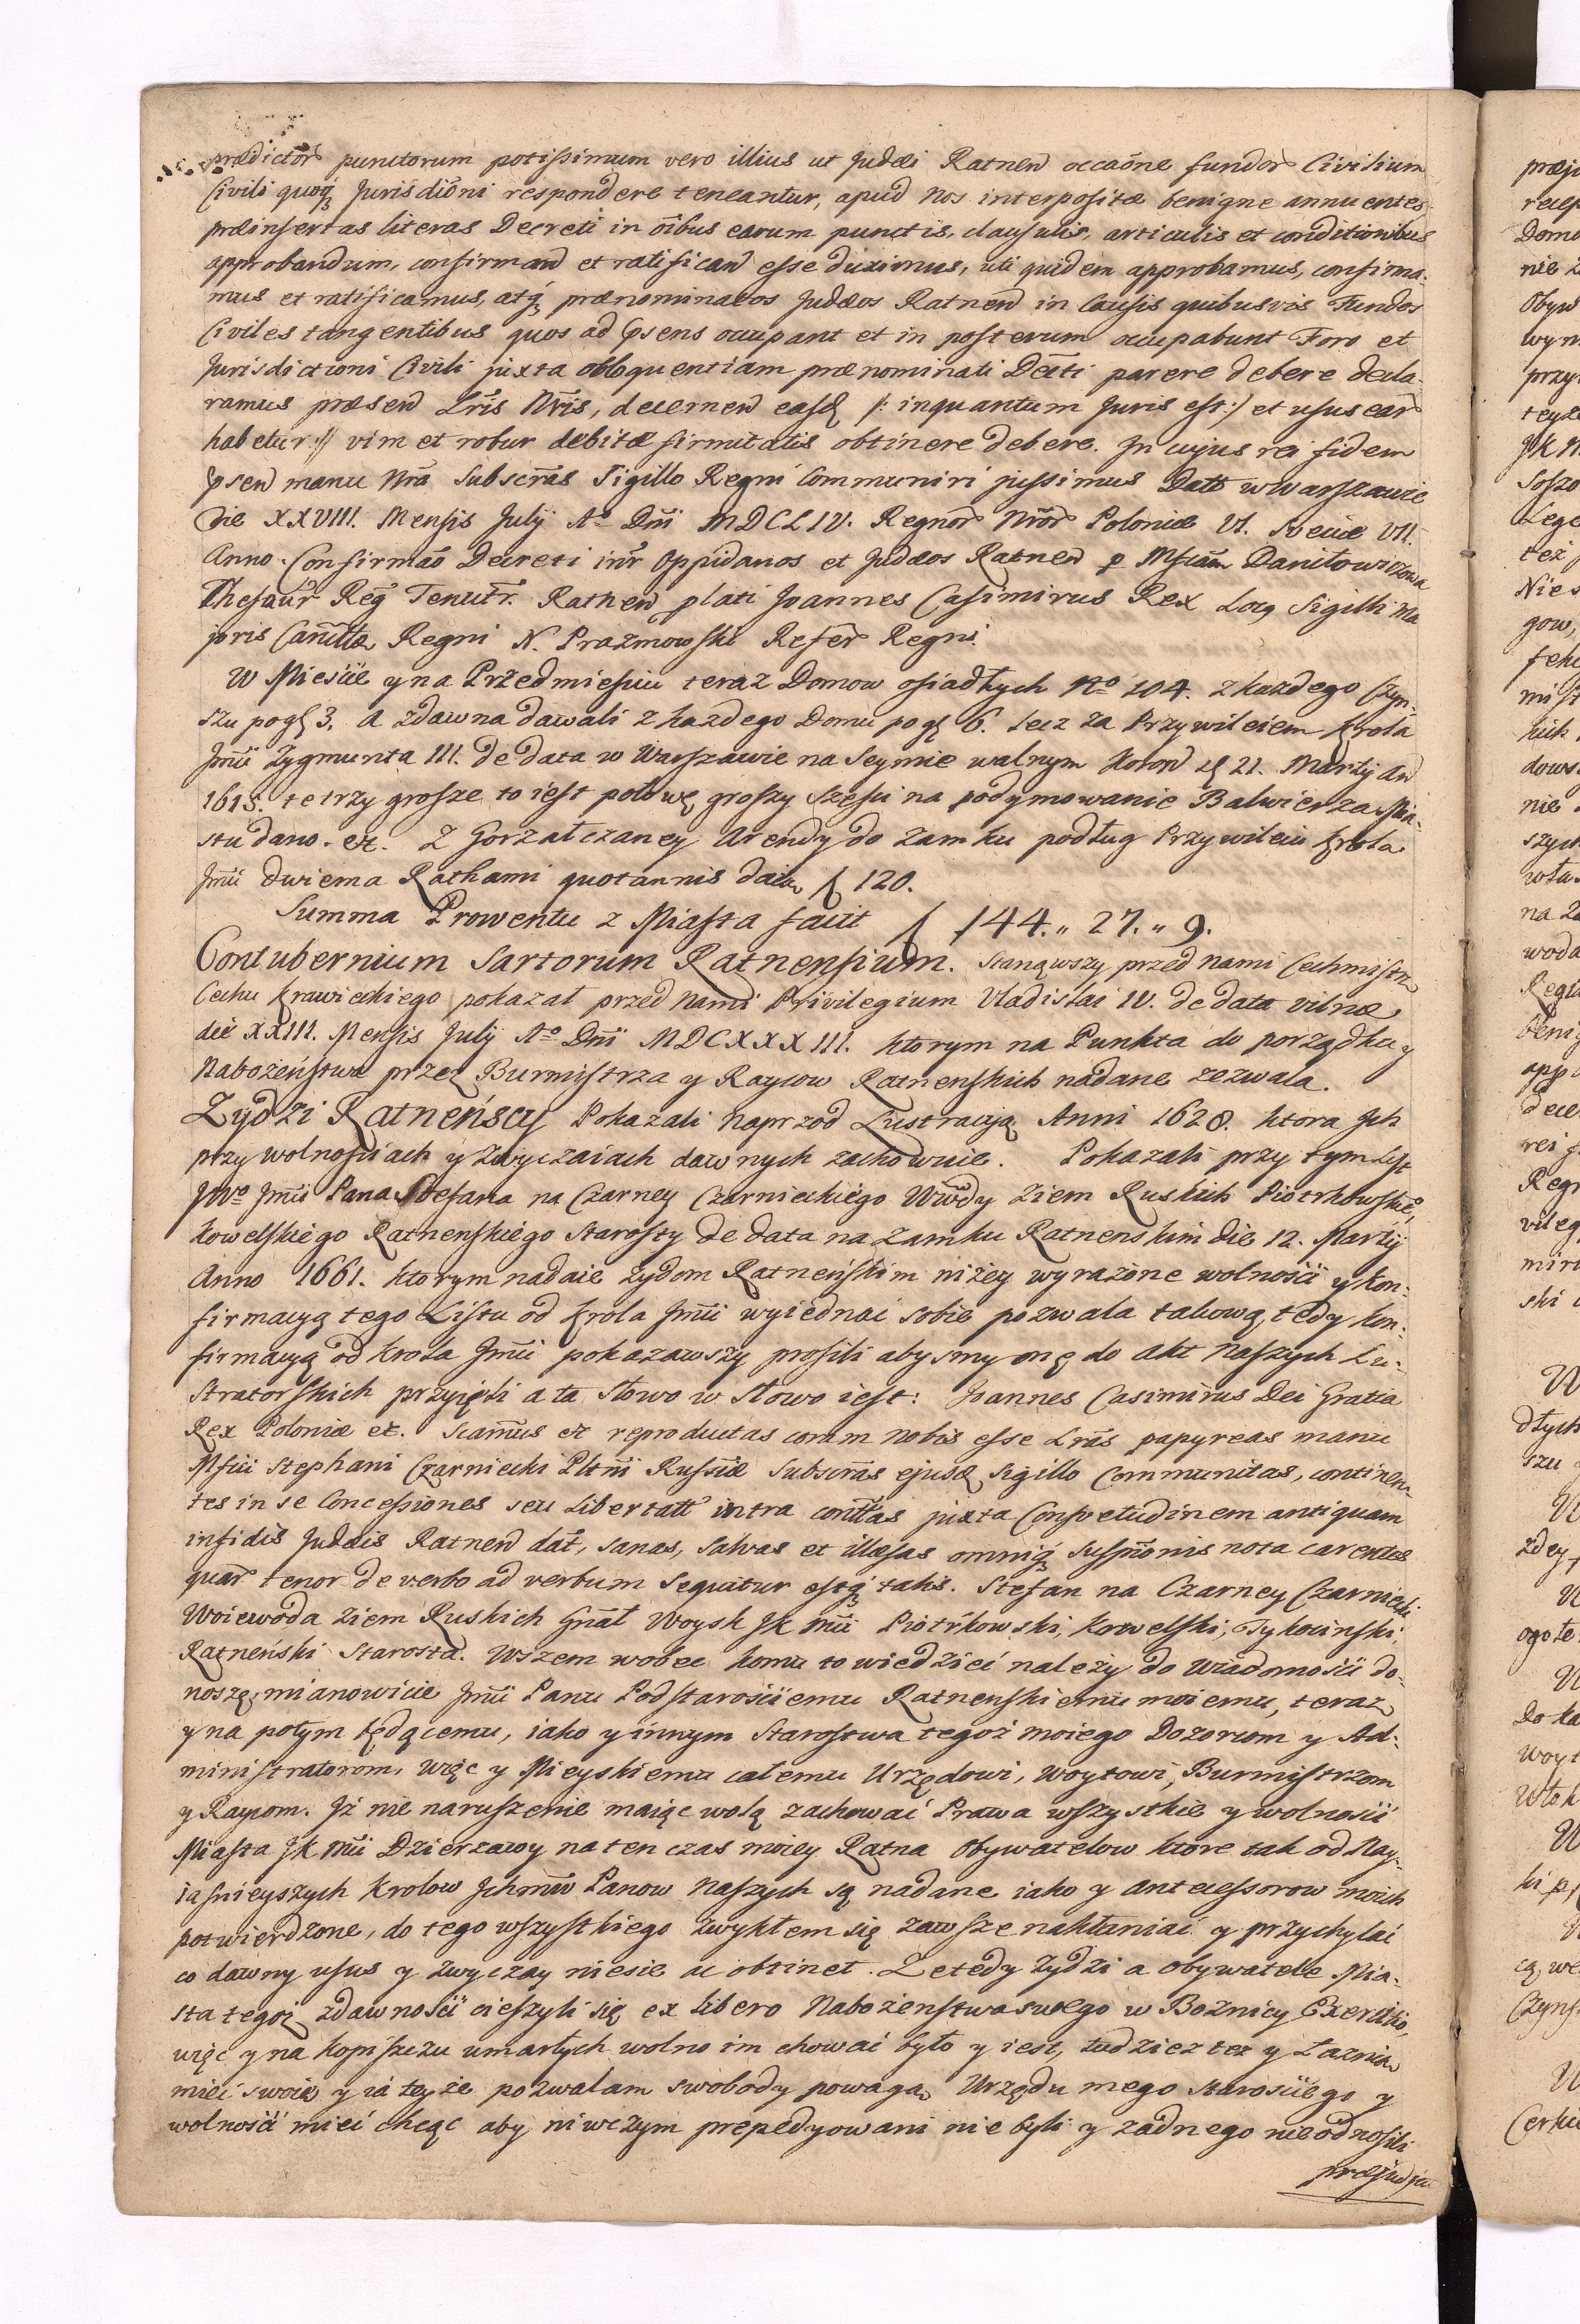 prædictor̃ punctorum potissimum vero illius ut Judæi Ratneñ occaõne fundor̃ Civilium
Civili quoqз Jurisdiõni respondere teneantur, apud Nos interpositæ benigne annuentes
præinsertas literas Decreti in oĩbus earum punctis, clausulis, articulis et conditionibus
approbandum, confirmañ et ratificañ esse duximus, uti quidem approbamus, confirma-
mus et ratificamus, atqз prænominatos Judæos Ratneñ in Causis quibusvis Fundos
Civiles tangentibus quos ad psens occupant et in posterum occupabunt Foro et
Jurisdictioni Civili juxta obloquentiam prænominati Decti parere debere decla-
ramus præseñ Lr̃is Nr̃is, decerneñ easđ /: inquantum Juris est :/ et usus ear̃
habetur :// vim et robur debitæ firmitatis obtinere debere. In cujus rei fidem
pseñ manu Nr̃a Subscr̃as Sigillo Regni Communiri jussimus Datt w Warszawie
Die XXVIII. Mensis July Aº Dñi MDCLIV. Regnor̃ Nr̃or̃ Poloniæ VI. Sveciæ VII.
Anno. Confirmaõ Decreti intr̃ Oppidanos et Judæos Ratneñ p Mfcum Daniłowiczowa
Thesaur̃ Reg̃ Tenutr̃. Ratneñ plati Joannes Casimirus Rex Locg Sigilli Ma
joris Cancellæ Regni N. Prazmowski Refer̃ Regni.
W Miescie y na Przedmiesciu teraz Domow osiadłych Nº 104. z kazdego Czyn-
szu po gł 3. A zdawna dawali z kazdego Domu po gł 6. lecz za Przywileiem Krola
Jmći Zygmunta III. de data w Warszawie na Seymie walnym Koroñ đ 21. Martij Añ
1618. te trzy grosze to iest połowę groszy sześci na podymowanie Balwierza Mia-
stu dano. etc. Z Gorzałczaney Arendy do Zamku podług Przywileiu Krola
Jmći dwiema Rathami quotannis daia f 120.
Summa Prowentu z Miasta facit f 144. " 27. " 9.
Contubernium Sartorum Ratnensium. Stanąwszy przed nami Cechmistrz
Cechu Krawieckiego pokazał przed nami Privilegium Vladislai IV. de data Vilnæ
die XXIII. Mensis July Aº Dñi MDCXXXIII. ktorym na Punkta do porządku y
Nabożeństwa przez Burmistrza y Raycow Ratnenskich nadane zezwala.
Zydzi Ratneńscy Pokazali naprzod Lustracyą Anni 1628. ktora Jch
przy wolnosciach y zwyczaiach dawnych zachowuie. Pokazali przy tym List
JWº Jmći Pana Stefana na Czarney Czarnieckiego Wwdy Ziem Ruskich Piotrkowskiº,
Kowelskiego Ratnenskiego Starosty de data na Zamku Ratnenskim die 12. Martij
Anno 1661. ktorym nadaie Zydom Ratneńskim niżey wyrażone wolności y kon-
firmacyą tego Listu od Krola Jmći wyiednać sobie pozwala takową tedy kon-
firmacyą od Krola Jmći pokazawszy prosili abysmy onę do Akt Naszych Lu-
stratorskich przyięli a ta słowo w słowo iest: Joannes Casimirus Dei Gratia
Rex Poloniæ etc. Scam̃us etc reproductas coram nobis esse Lr̃as papyreas manu
Mfici Stephani Czarniecki Pltni Russiæ Subscr̃as ejusđ Sigillo Communitas, continen-
tes in se Concessiones seu Libertatt intra conttas juxta Consvetudinem antiquam
infidis Judæis Ratneñ dat̃, Sanas, Salvas et illæsas omniqз Suspnõnis nota carentes
quar̃ tenor de verbo ad verbum Sequitur estqз talis. Stefan na Czarney Czarniecki
Woiewoda Ziem Ruskich Gñał Woysk JK Mći Piotrkowski, Kowelski, Tykocinski,
Ratneński Starosta. Wszem wobec komu to wiedzieć należy do wiadomości do-
noszę, mianowicie Jmći Panu Podstarościemu Ratnenskiemu moiemu, teraz
y na potym będącemu, iako y innym Starostwa tegoż moiego Dozorcom y Ad-
ministratorom, więc y Mieyskiemu całemu Urzędowi, Woytowi, Burmistrzom
y Raycom. Iż nie naruszenie maiąc wolą zachować Prawa wszystkie y wolności
Miasta JK Mći Dzierzawy na ten czas moiey Ratna Obywatelow ktore tak od Nay-
iasnieyszych Krolow Jchmćiow Panow Naszych są nadane iako y Antecessorow moich
potwierdzone, do tego wszystkiego zwykłem się zawsze nakłaniać y przychylać
co dawny usus y zwyczay niesie ac obtinet. Ze tedy Zydzi a Obywatele Mia-
sta tegoż zdawności cieszyli się ex libero Nabożeństwa swego w Bożnicy Exercitio,
więc y na kopiszczu umarłych wolno im chować było y iest, tudziesz tez y Łaznia
mieć swoie y ia tejże pozwalam swobody powaga Urzędu mego Starosciego y
wolności mieć chcąc aby niwczym prepedyowani nie byli y żadnego nie odnosili
præjudicium